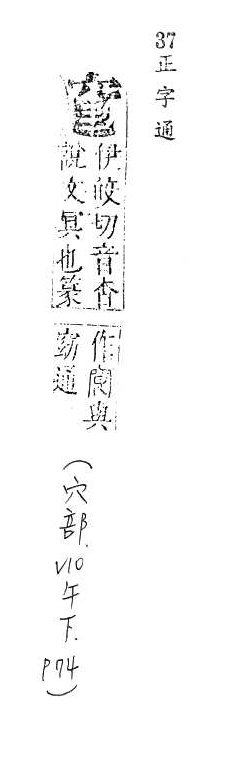 37正字通
伊皎切音杳
說文冥也篆
作與
窈通
(穴部. V10 午下. P74)